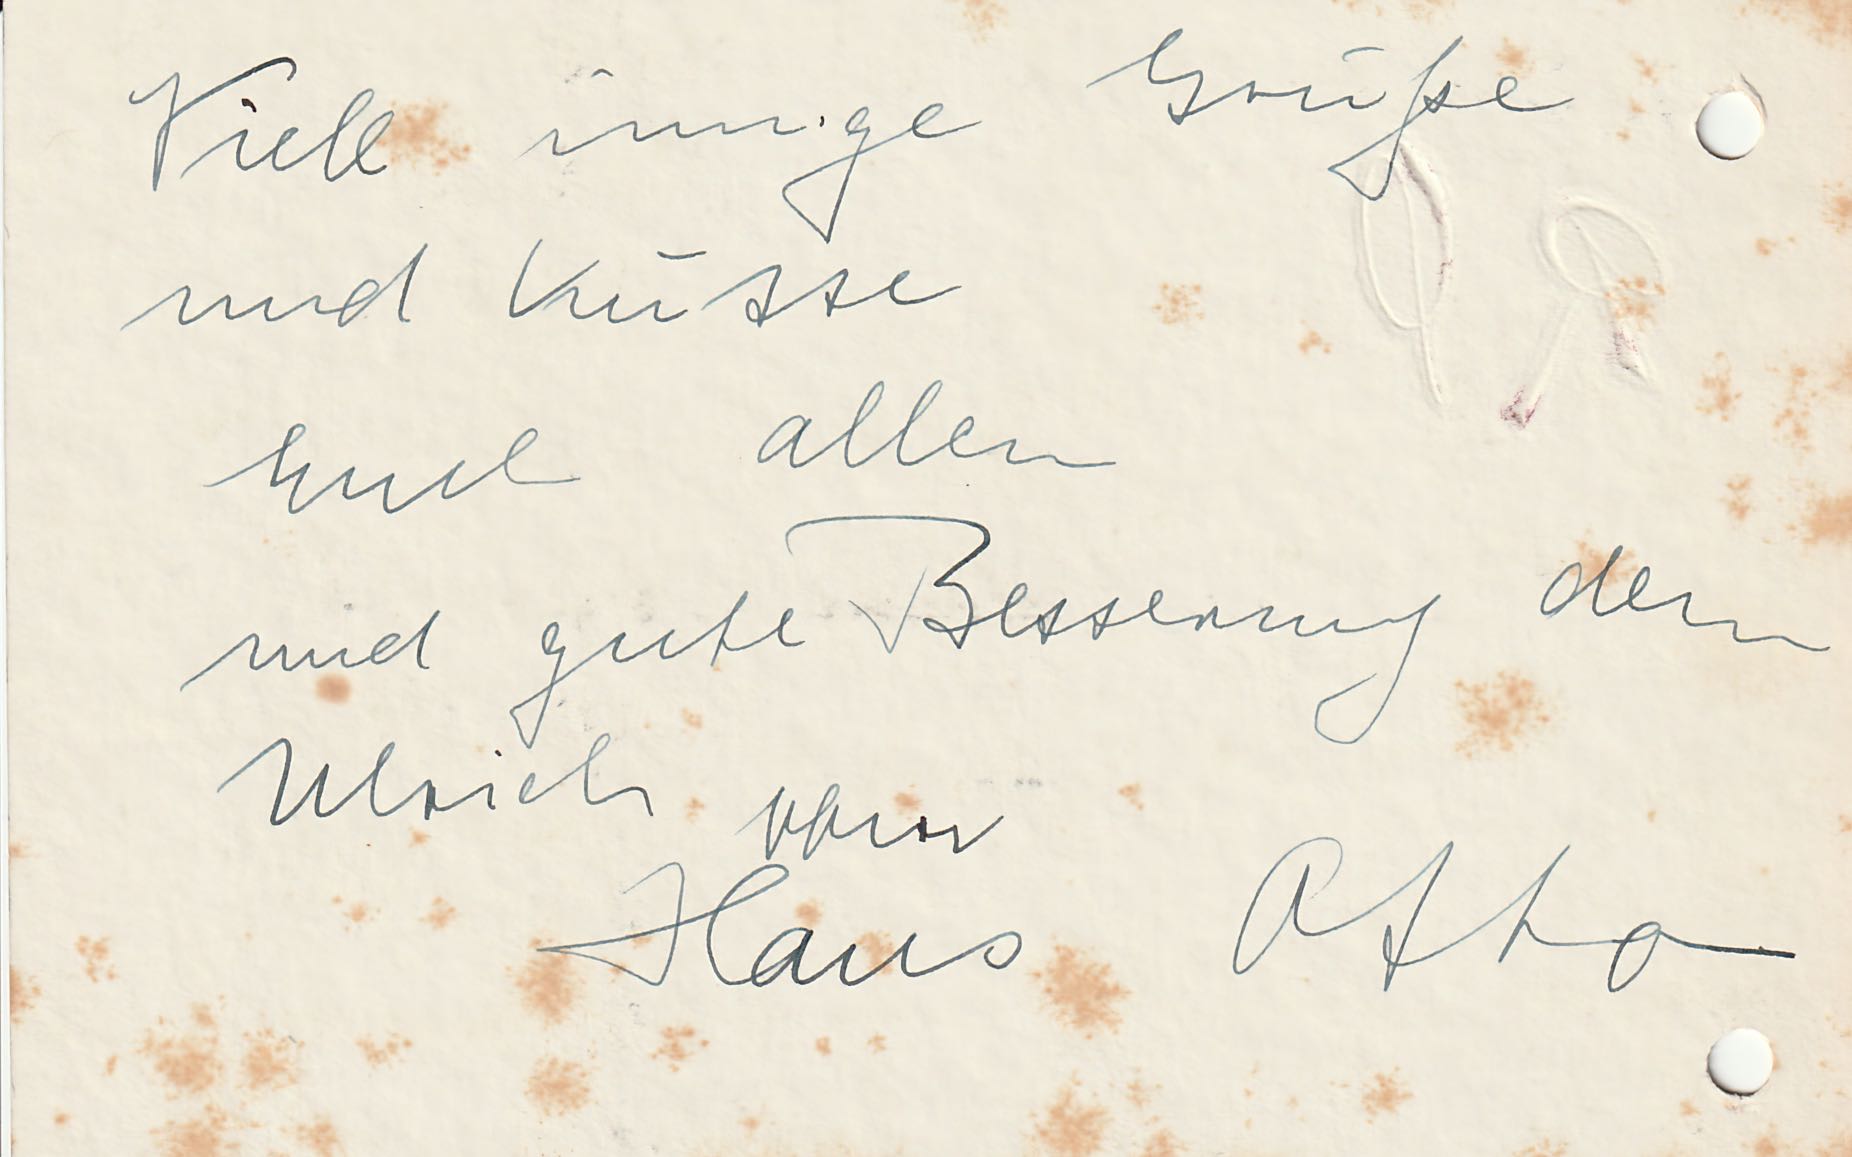 Viele innige Grüße
und Küsse
Euch allen
und gute Besserung dem
Ulrich vom
Hans Otto